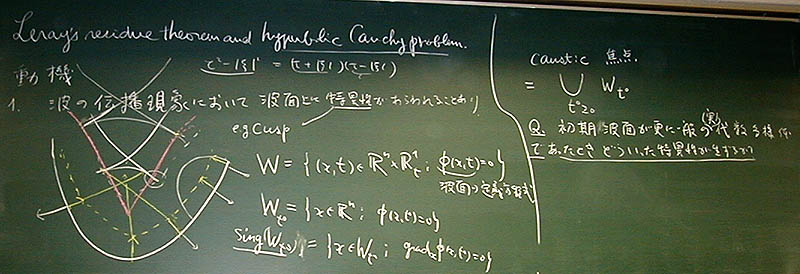 Leray's residue theorem and hyperbolic Cauchy problem.
τ²-|ξ|² = (τ+|ξ|)(τ-|ξ|)
動機
1. 波の伝播現象において 波面上に特異性があらわれることあり
e.g. Cusp
W = { (x,t) ∈ ℝⁿₓ×ℝ¹ₜ ; φ(x,t)=0 }
波面の定義方程式
W_t⁰ = { x∈ℝⁿ ; φ(x,t)=0 }
Sing(W_t⁰) = { x∈W_t⁰ ; grad_x φ(x,t)=0 }
caustic 焦点
= ∪ W_t⁰
t⁰≥0
Q. 初期波面が更に一般の(実)代数多様体
であったとき どういった特異性が生ずるか?